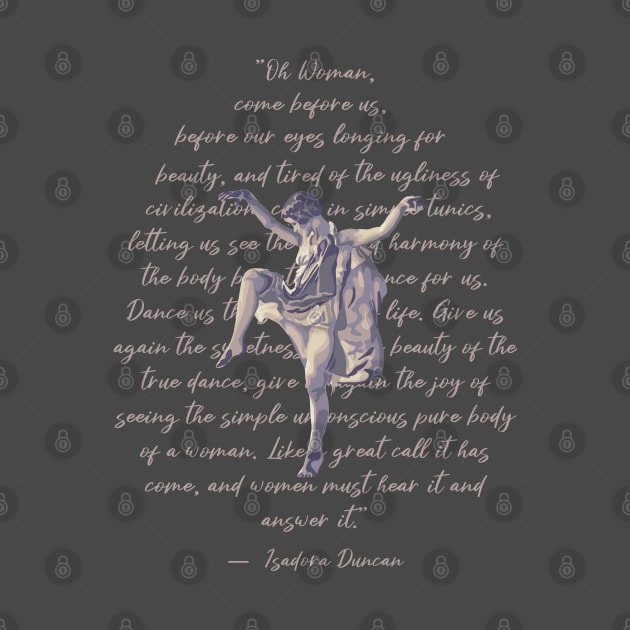 "Oh Woman,
come before us,
before our eyes longing for
beauty, and tired of the ugliness of
civilization, in simple tunics,
letting us see the harmony of
the body for us.
Dance us life. Give us
again the beauty of the
true dance, give again the joy of
seeing the simple unconscious pure body
of a woman. Like a great call it has
come, and women must hear it and
answer it."
— Isadora Duncan